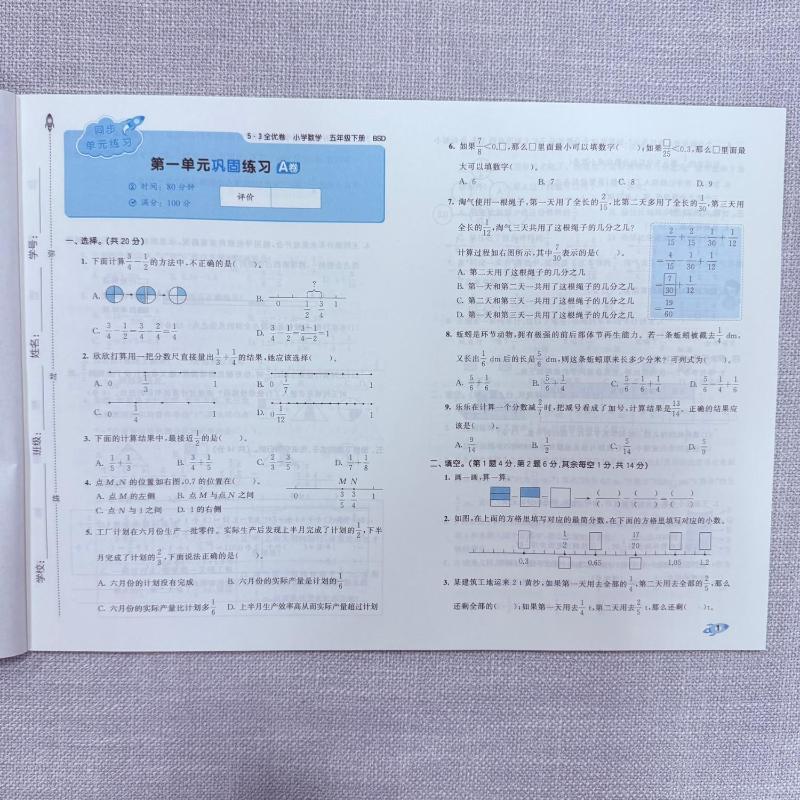 同步
单元练习
5·3全优卷 小学数学 五年级下册 BSD
第一单元巩固练习 A卷
时间:80分钟
满分:100分
评价
学号:
姓名:
班级:
学校:
一、选择。(共20分)
1. 下面计算3/4-1/2的方法中,不正确的是( )。
A. B. ? 0 1/2 3/4 1
C. 3/4-1/2=3/4-2/4=1/4 D. 3/4-1/2=(3-1)/(4-2)=1
2. 欣欣打算用一把分数尺直接量出1/3+1/4的结果,她应该选择( )。
A. 0 1/3 1 B. 0 1/7 1
C. 0 1/4 1 D. 0 1/12 1
3. 下面的计算结果中,最接近1/2的是( )。
A. 1/5+1/3 B. 3/4+1/5 C. 2/3-3/5 D. 1/7+1/8
4. 点M、N的位置如右图,0.7的位置在( )。
A. 点M的左侧 B. 点M与点N之间
C. 点N与1之间 D. 1的右侧
0 M N 3/5 3/4 1
5. 工厂计划在六月份生产一批零件。实际生产后发现上半月完成了计划的1/2,下半
月完成了计划的2/3,下面说法正确的是( )。
A. 六月份的计划没有完成 B. 六月份的实际产量是计划的1/6
C. 六月份的实际产量比计划多1/6 D. 上半月生产效率高从而实际产量超过计划
6. 如果7/8<0.□,那么□里面最小可以填数字( );如果□/25<0.3,那么□里面最
大可以填数字( )。
A. 6 B. 7 C. 8 D. 9
7. 淘气使用一根绳子,第一天用了全长的2/15,比第二天多用了全长的1/30,第三天用
全长的1/12,淘气三天共用了这根绳子的几分之几?
计算过程如右图所示,其中7/30表示的是( )。
A. 第二天用了这根绳子的几分之几
B. 第一天和第二天一共用了这根绳子的几分之几
C. 第二天和第三天一共用了这根绳子的几分之几
D. 第一天和第三天一共用了这根绳子的几分之几
2/15+2/15-1/30+1/12
=4/15-1/30+1/12
=7/30+1/12
=19/60
8. 蚯蚓是环节动物,拥有极强的前后部体节再生能力。若一条蚯蚓被截去1/4 dm,
又长出1/6 dm后的长是5/6 dm,则这条蚯蚓原来长多少分米?可列式为( )。
A. 5/6+1/6 B. 5/6+1/4 C. 5/6-1/6+1/4 D. 5/6-1/4+1/6
9. 乐乐在计算一个分数减2/7时,把减号看成了加号,计算结果是13/14。正确的结果应
该是( )。
A. 9/14 B. 1/2 C. 5/14 D. 5/9
二、填空。(第1题4分,第2题6分,其余每空1分,共14分)
1. 画一画,算一算。
( )/( )-( )/( )=( )/( )
2. 如图,在上面的方格里填写对应的最简分数,在下面的方格里填写对应的小数。
1/2 17/20
0.3 0.65 1.05 1.2
3. 某建筑工地运来2 t黄沙,如果第一天用去全部的1/4,第二天用去全部的2/5,那么
还剩全部的( );如果第一天用去1/4 t,第二天用去2/5 t,那么还剩( )t。
1